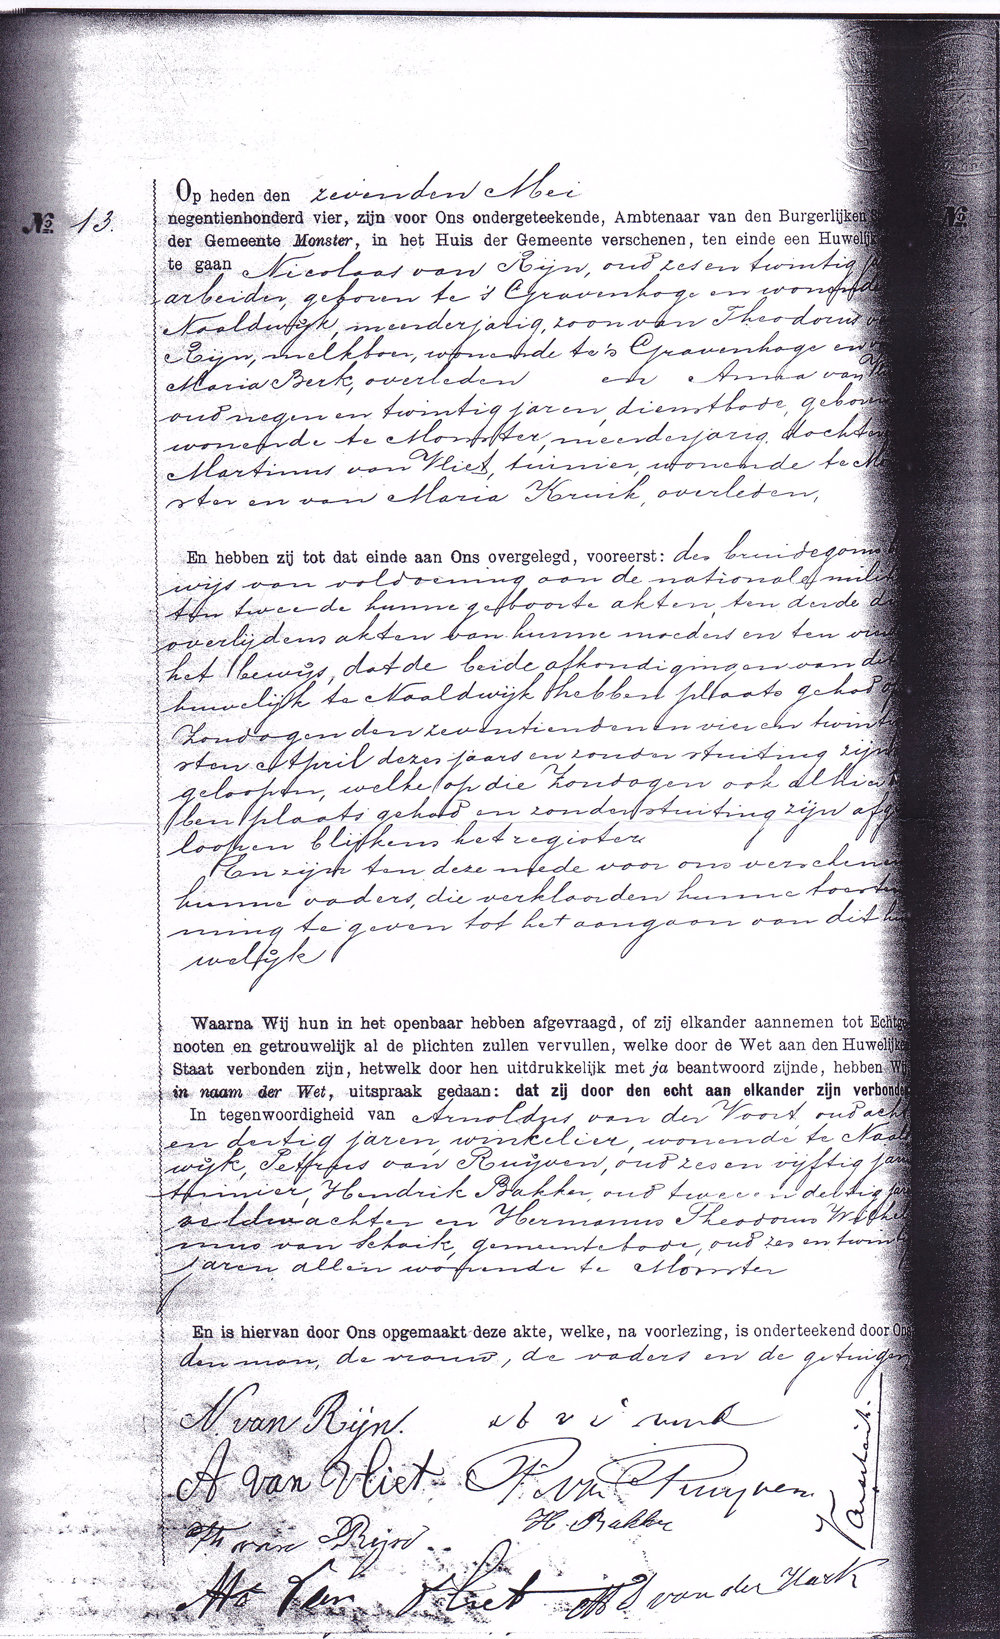 Op heden den zevenden Mei
№ 13. negentienhonderd vier, zijn voor Ons ondergeteekende, Ambtenaar van den Burgerlijken S
№
der Gemeente Monster, in het Huis der Gemeente verschenen, ten einde een Huwelijk
te gaan Nicolaas van Rijn, oud zes en twintig
arbeider, geboren te 's Gravenhage en wonende
Naaldwijk, meerderjarig, zoon van Theodorus
Rijn, melkboer, wonende te 's Gravenhage en
Maria Berk, overleden en Anna van
oud negen en twintig jaren, dienstbode, geboren
wonende te Monster, meerderjarig, dochter
Martinus van Vliet, tuinier, wonende te Mo
ster en van Maria Kruik, overleden,
En hebben zij tot dat einde aan Ons overgelegd, vooreerst: des bruidegoms
wijs van voldoening aan de nationale milit
ten tweede hunne geboorte akten, ten derde de
overlijdens akten van hunne moeders en ten vier
het bewijs, dat de beide afkondigingen van dit
huwelijk te Naaldwijk hebben plaats gehad op
Zondagen den zeventienden en vier en twintig
sten April dezes jaars en zonder stuiting zijn
geloopen, welke op die Zondagen ook alhier
ben plaats gehad en zonder stuiting zijn afge
loopen blijkens het register
En zijn ten deze mede voor ons verschenen
hunne vaders, die verklaarden hunne toestem
ming te geven tot het aangaan van dit hu
welijk
Waarna Wij hun in het openbaar hebben afgevraagd, of zij elkander aannemen tot Echtge
nooten en getrouwelijk al de plichten zullen vervullen, welke door de Wet aan den Huwelijken
Staat verbonden zijn, hetwelk door hen uitdrukkelijk met ja beantwoord zijnde, hebben Wij
in naam der Wet, uitspraak gedaan: dat zij door den echt aan elkander zijn verbonden
In tegenwoordigheid van Arnoldus van der Voort, oud acht
en dertig jaren, winkelier, wonende te Naald
wijk, Petrus van Ruijven, oud zes en vijftig jaren
tuinier, Hendrik Bakker, oud twee en dertig jaren
veldwachter en Hermanus Theodorus Wilhel
mus van Schaik, gemeentebode, oud zes en twintig
jaren allen wonende te Monster
En is hiervan door Ons opgemaakt deze akte, welke, na voorlezing, is onderteekend door Ons
den man, de vrouw, de vaders en de getuigen
N. van Rijn.
A van Vliet
P. van Ruyven
Th van Rijn
H. Bakker
van Vliet
van der Hark